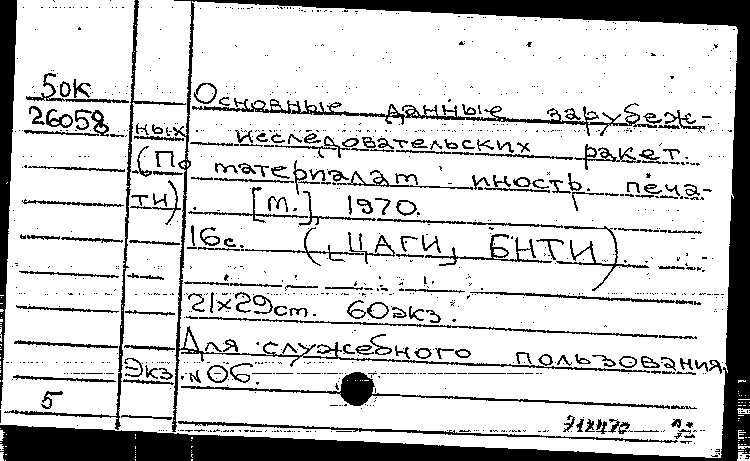 50К
26058
Основные данные зарубеж-
ных исследовательских ракет.
(По материалам иностр. печа-
ти). [М.], 1970.
16с. (ЦАГИ, БНТИ).
21х29см. 60экз.
Для служебного пользования.
Экз. №06.
5